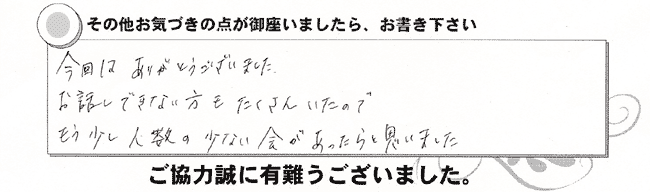 その他お気づきの点が御座いましたら、お書き下さい
今回は ありがとうございました.
お話しできない方もたくさんいたので
もう少し人数の少ない会があったらと思いました
ご協力誠に有難うございました。